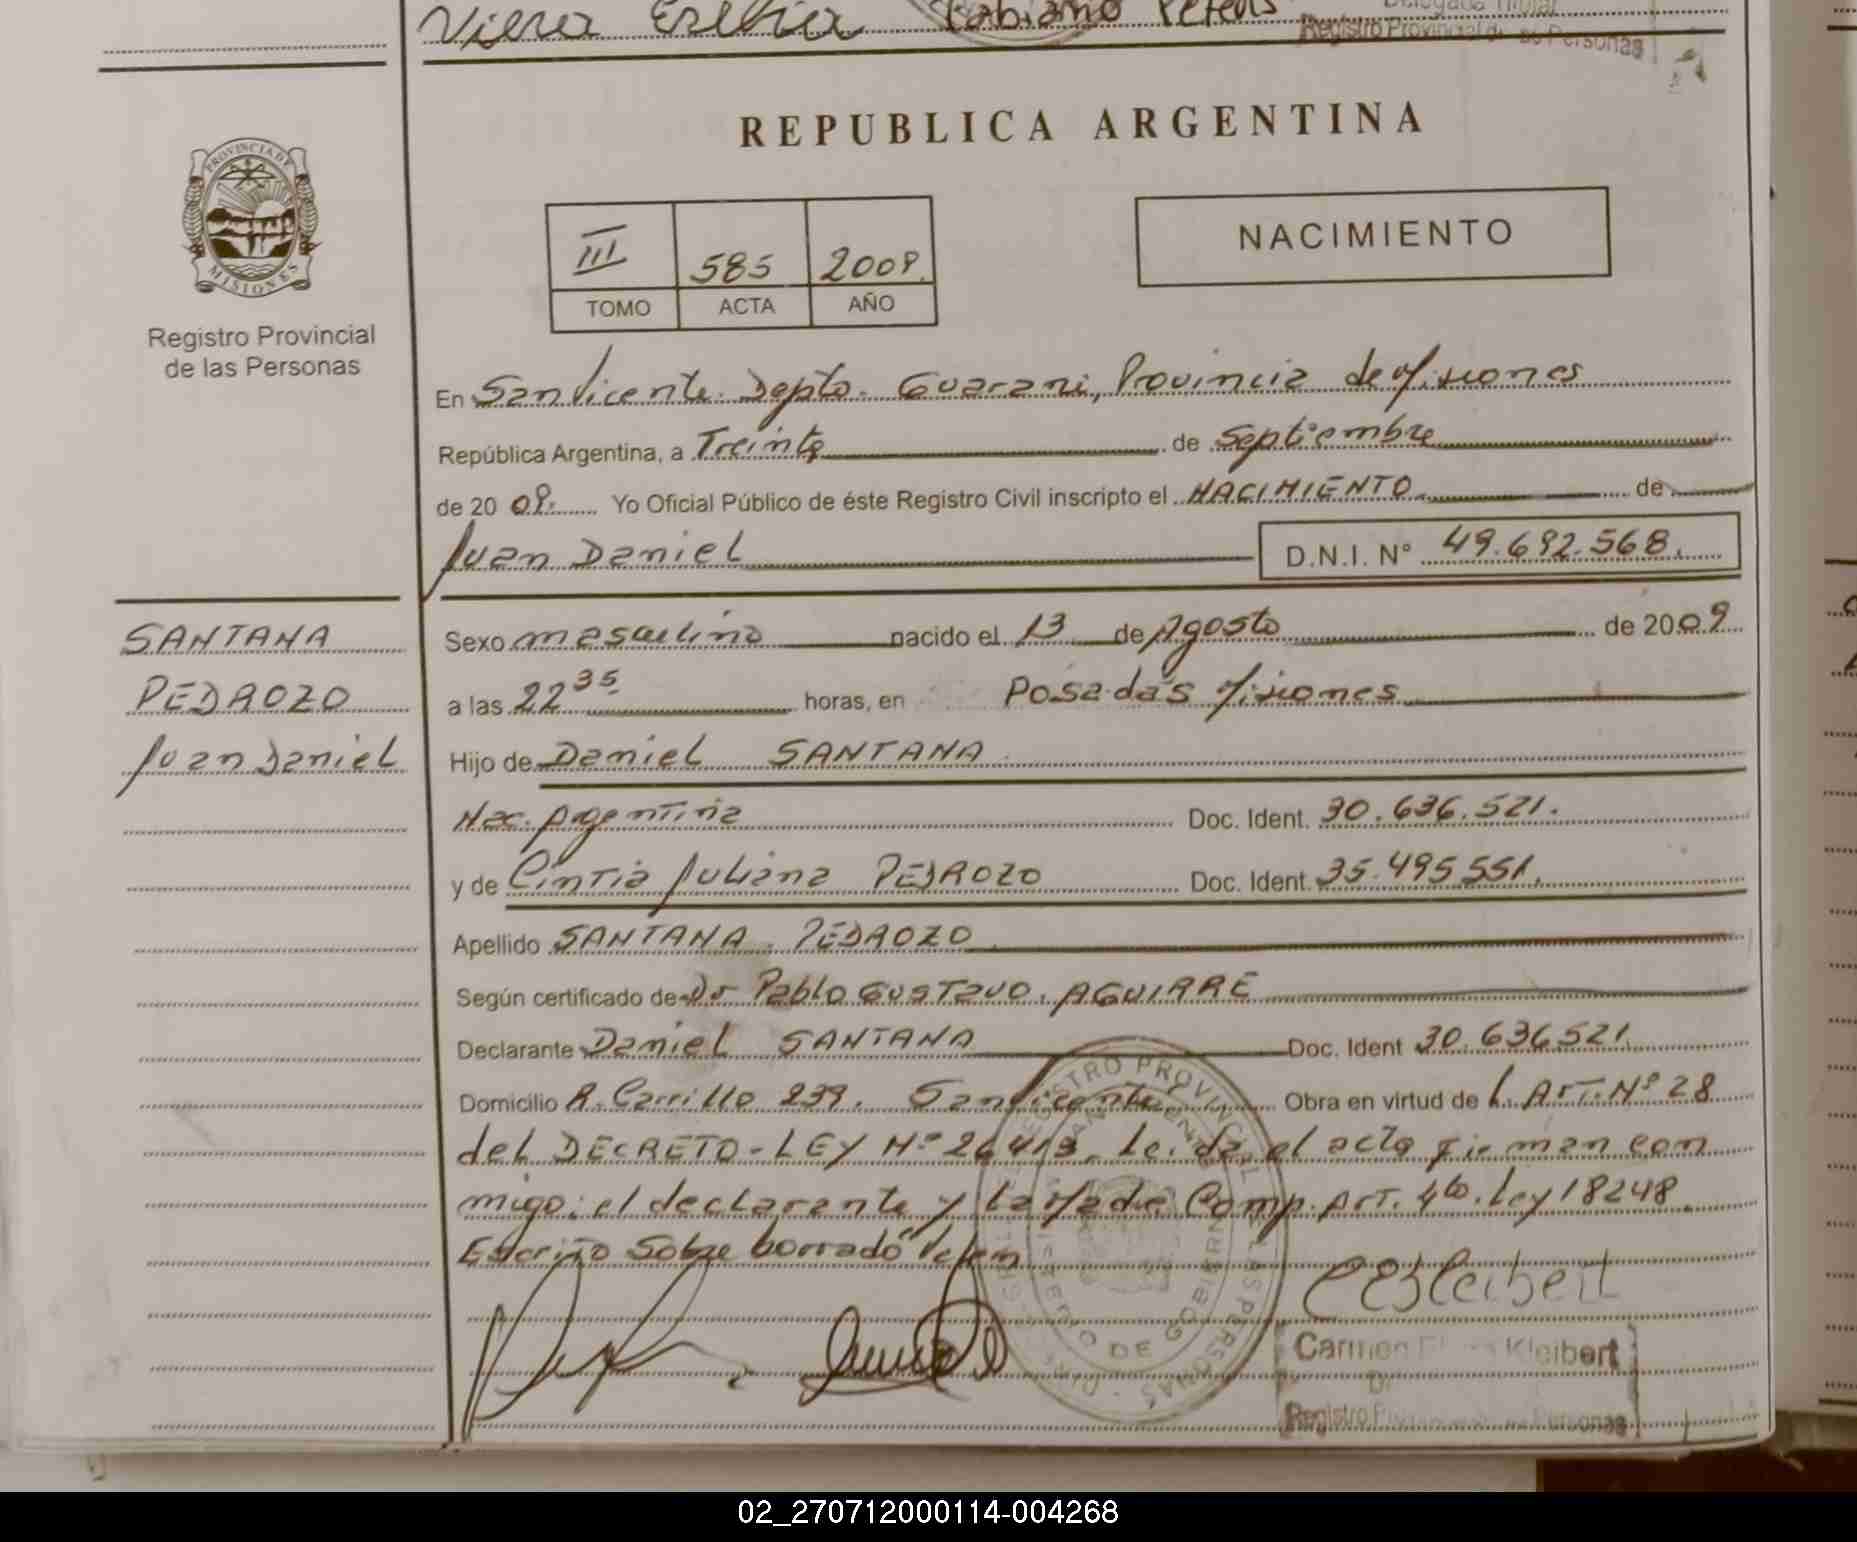 Registro Provincial de Personas
PROVINCIA DE
MISIONES
Registro Provincial
de las Personas
SANTANA
PEDROZO
Juan Daniel
REPUBLICA ARGENTINA
III 585 2009.
TOMO ACTA AÑO
NACIMIENTO
En San Vicente Depto. Guarani, Provincia de Misiones
República Argentina, a Treinta de Septiembre
de 20 09. Yo Oficial Público de éste Registro Civil inscripto el NACIMIENTO de
Juan Daniel D.N.I. N° 49.692.568.
Sexo masculino nacido el 13 de Agosto de 2009
a las 22 35 horas, en Posadas Misiones
Hijo de Daniel SANTANA
Nac. Argentina Doc. Ident. 30.636.521.
y de Cintia Juliana PEDROZO Doc. Ident. 35.495.551.
Apellido SANTANA PEDROZO
Según certificado de Dr Pablo Gustavo. AGUIRRE
Declarante Daniel SANTANA Doc. Ident 30.636.521.
Domicilio R. Carrillo 239. San Vicente Obra en virtud de L. ART. Nº 28
del DECRETO-LEY Nº 26413. Leida el acta firman con
migo: el declarante y la Madre Comp. Art. 4to. Ley 18248.
Escrito Sobre borrado
REGISTRO PROVINCIAL DE LAS PERSONAS
Carmen Kleibert
Registro Personas
02_270712000114-004268